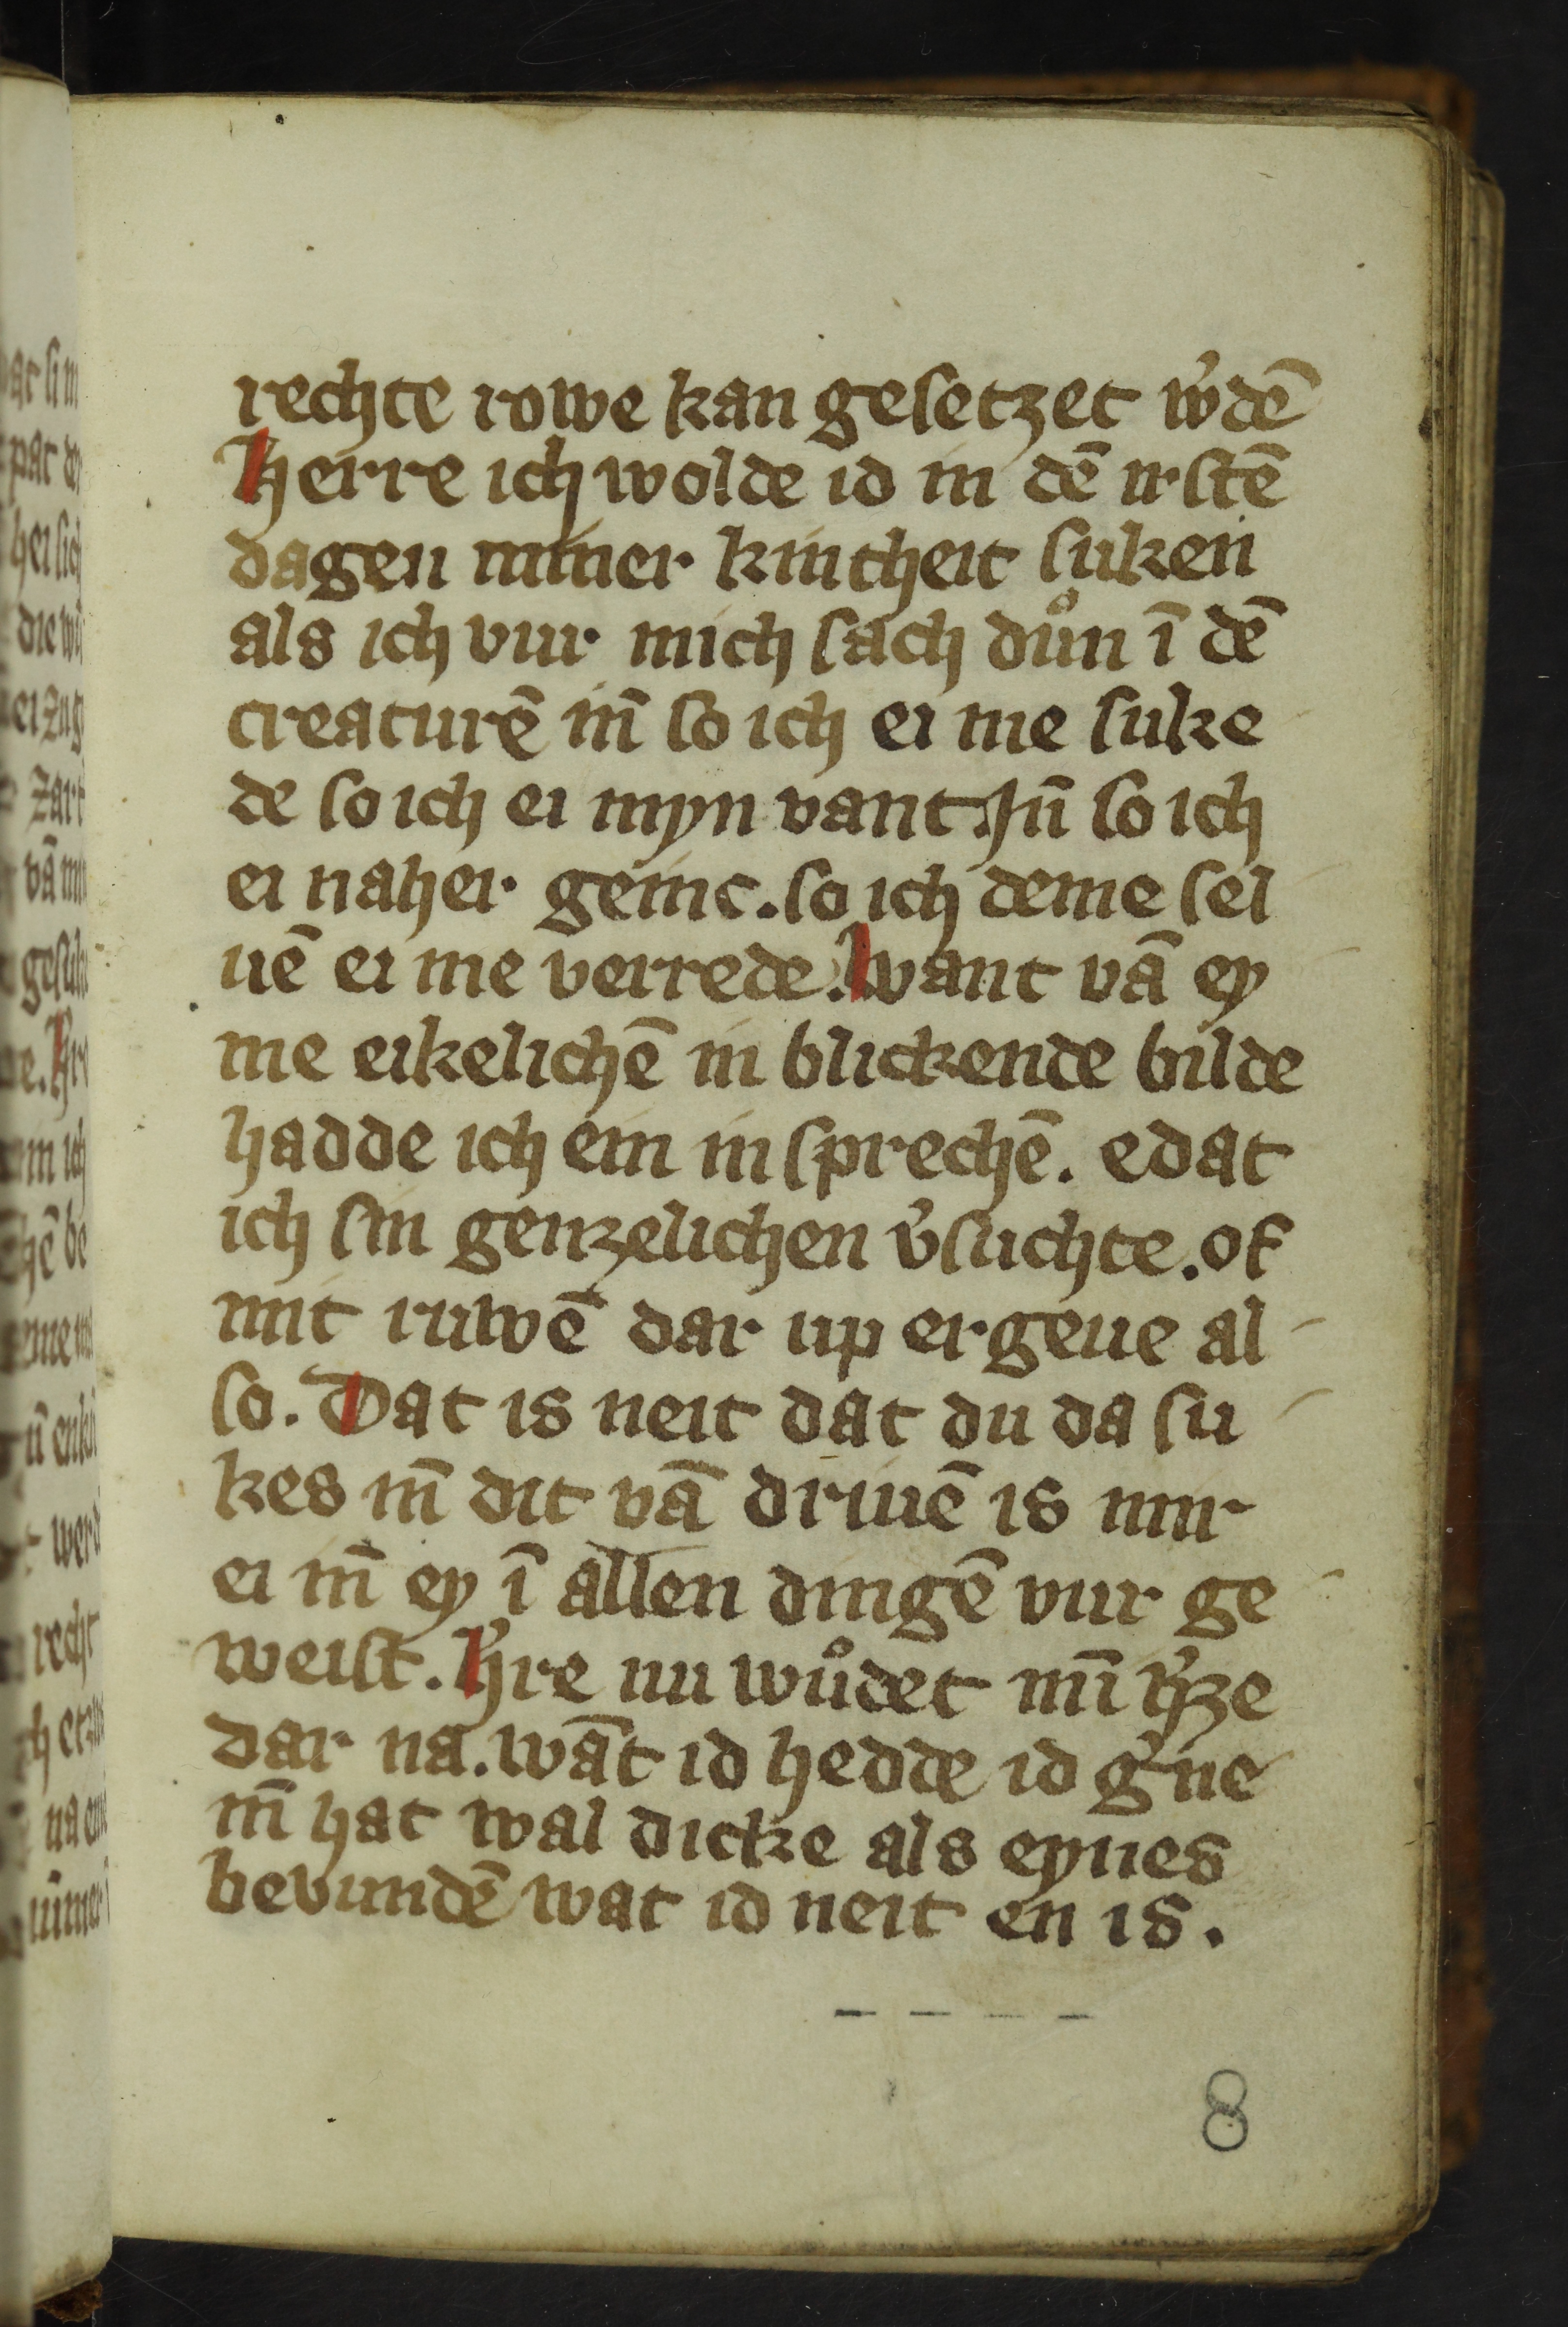 rechte rowe kan gesetzet w'dē
Herre ich wolde id in dē irstē
dagen miner kintheit suken
als ich vur mich sach důn ī dē
creaturē in̄ so ich ei me suke
de so ich ei myn vant. In̄ so ich
ei naher geinc. so ich deme sel
uē ei me verrede. Want vā ey
me eikelichē in blickende bilde
hadde ich ein in sprechē. e dat
ich sin genzelichen v'suchte. of
mit ruwē dar up ergeue al
so. Dat is neit dat du da su
kes in̄ dit vā driuē is mir
ei in̄ ey ī allen dingē vur ge
weist. H're nu wůdet mī h'ze
dar na. wāt id hedde id g'ne
in̄ hat wal dicke als eynes
bevundē wat id neit en is.
8